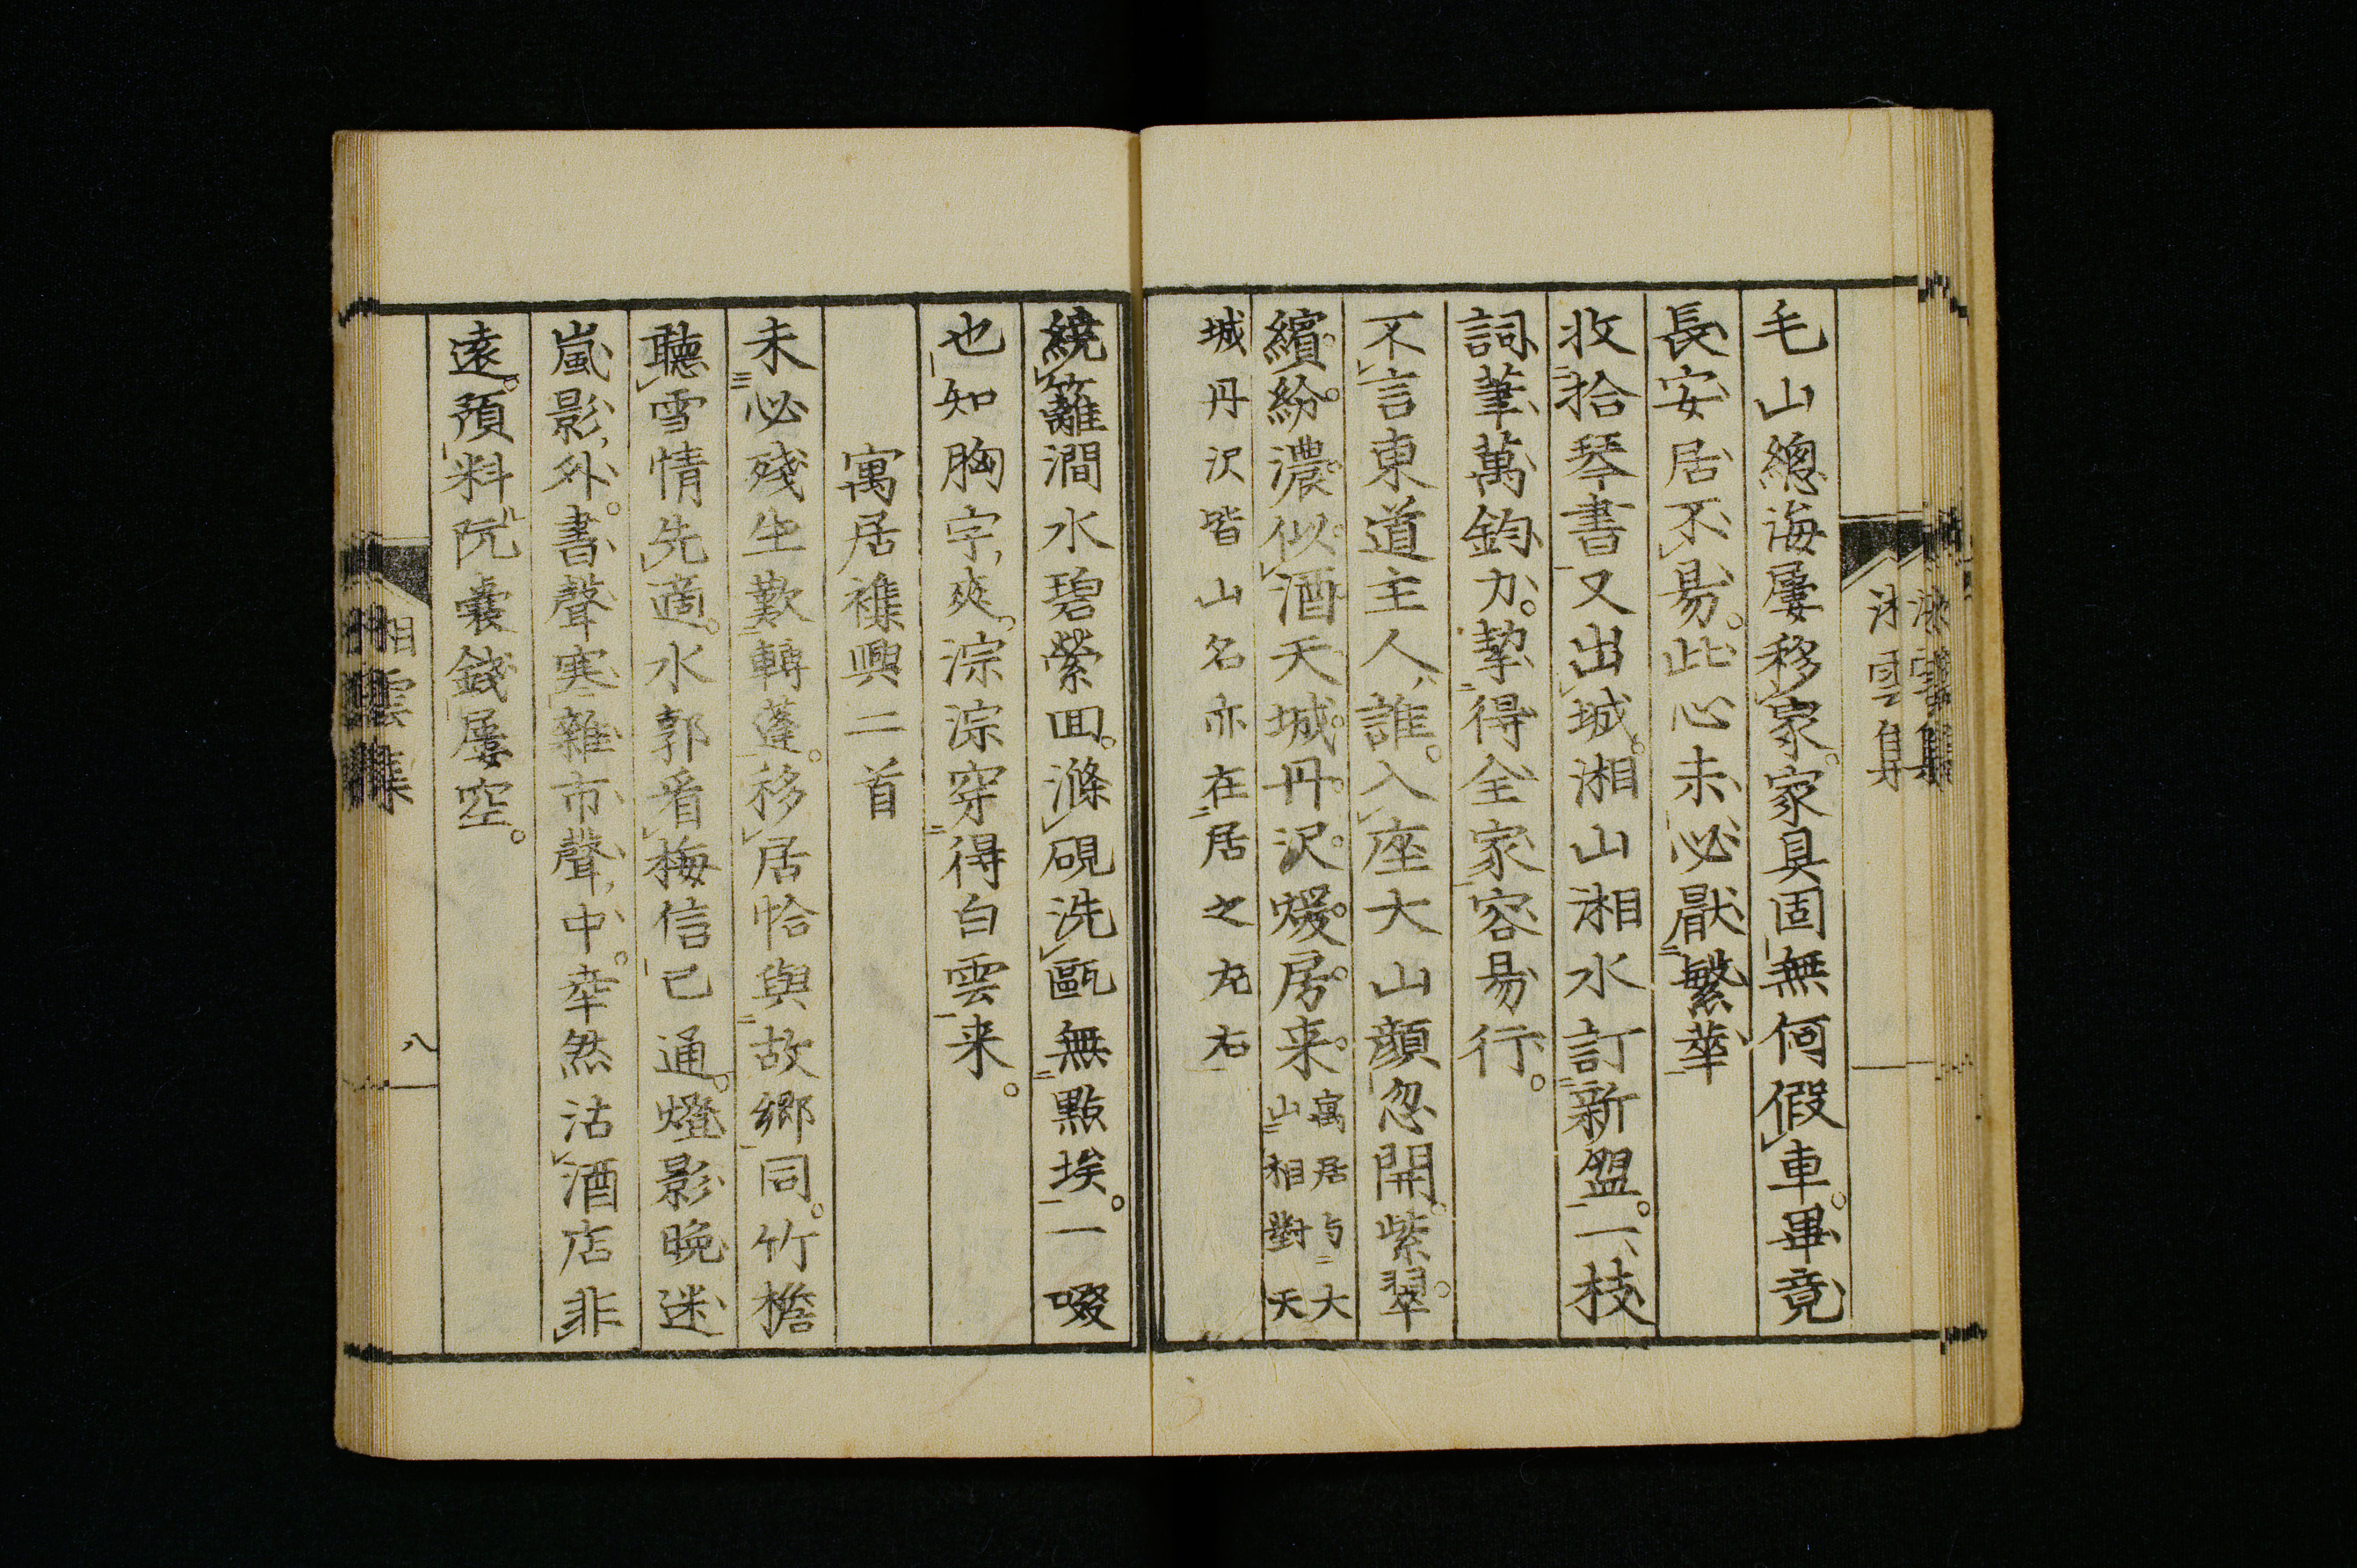 毛山總海屢移家家具固無何假車畢竟
長安居不易此心未必厭繁華
收拾琴書又出城湘山湘水訂新盟一枝
詞筆萬鈞力挈得全家容易行
不言東道主人誰入座大山顏忽開紫翠
繽紛濃似酒天城丹沢煖房来寓居与大
山相對天
城丹沢皆山名亦在居之左右
繞籬澗水碧縈回滌硯洗甌無點埃一啜
也知胸宇爽淙淙穿得白雲来
寓居襍興二首
未必殘生歎轉蓬移居恰與故鄉同竹檐
聽雪情先適水郭看梅信已通燈影晚迷
嵐影外書聲寒雜市聲中幸然沽酒店非
遠預料阮囊錢屢空
湘雲集
八